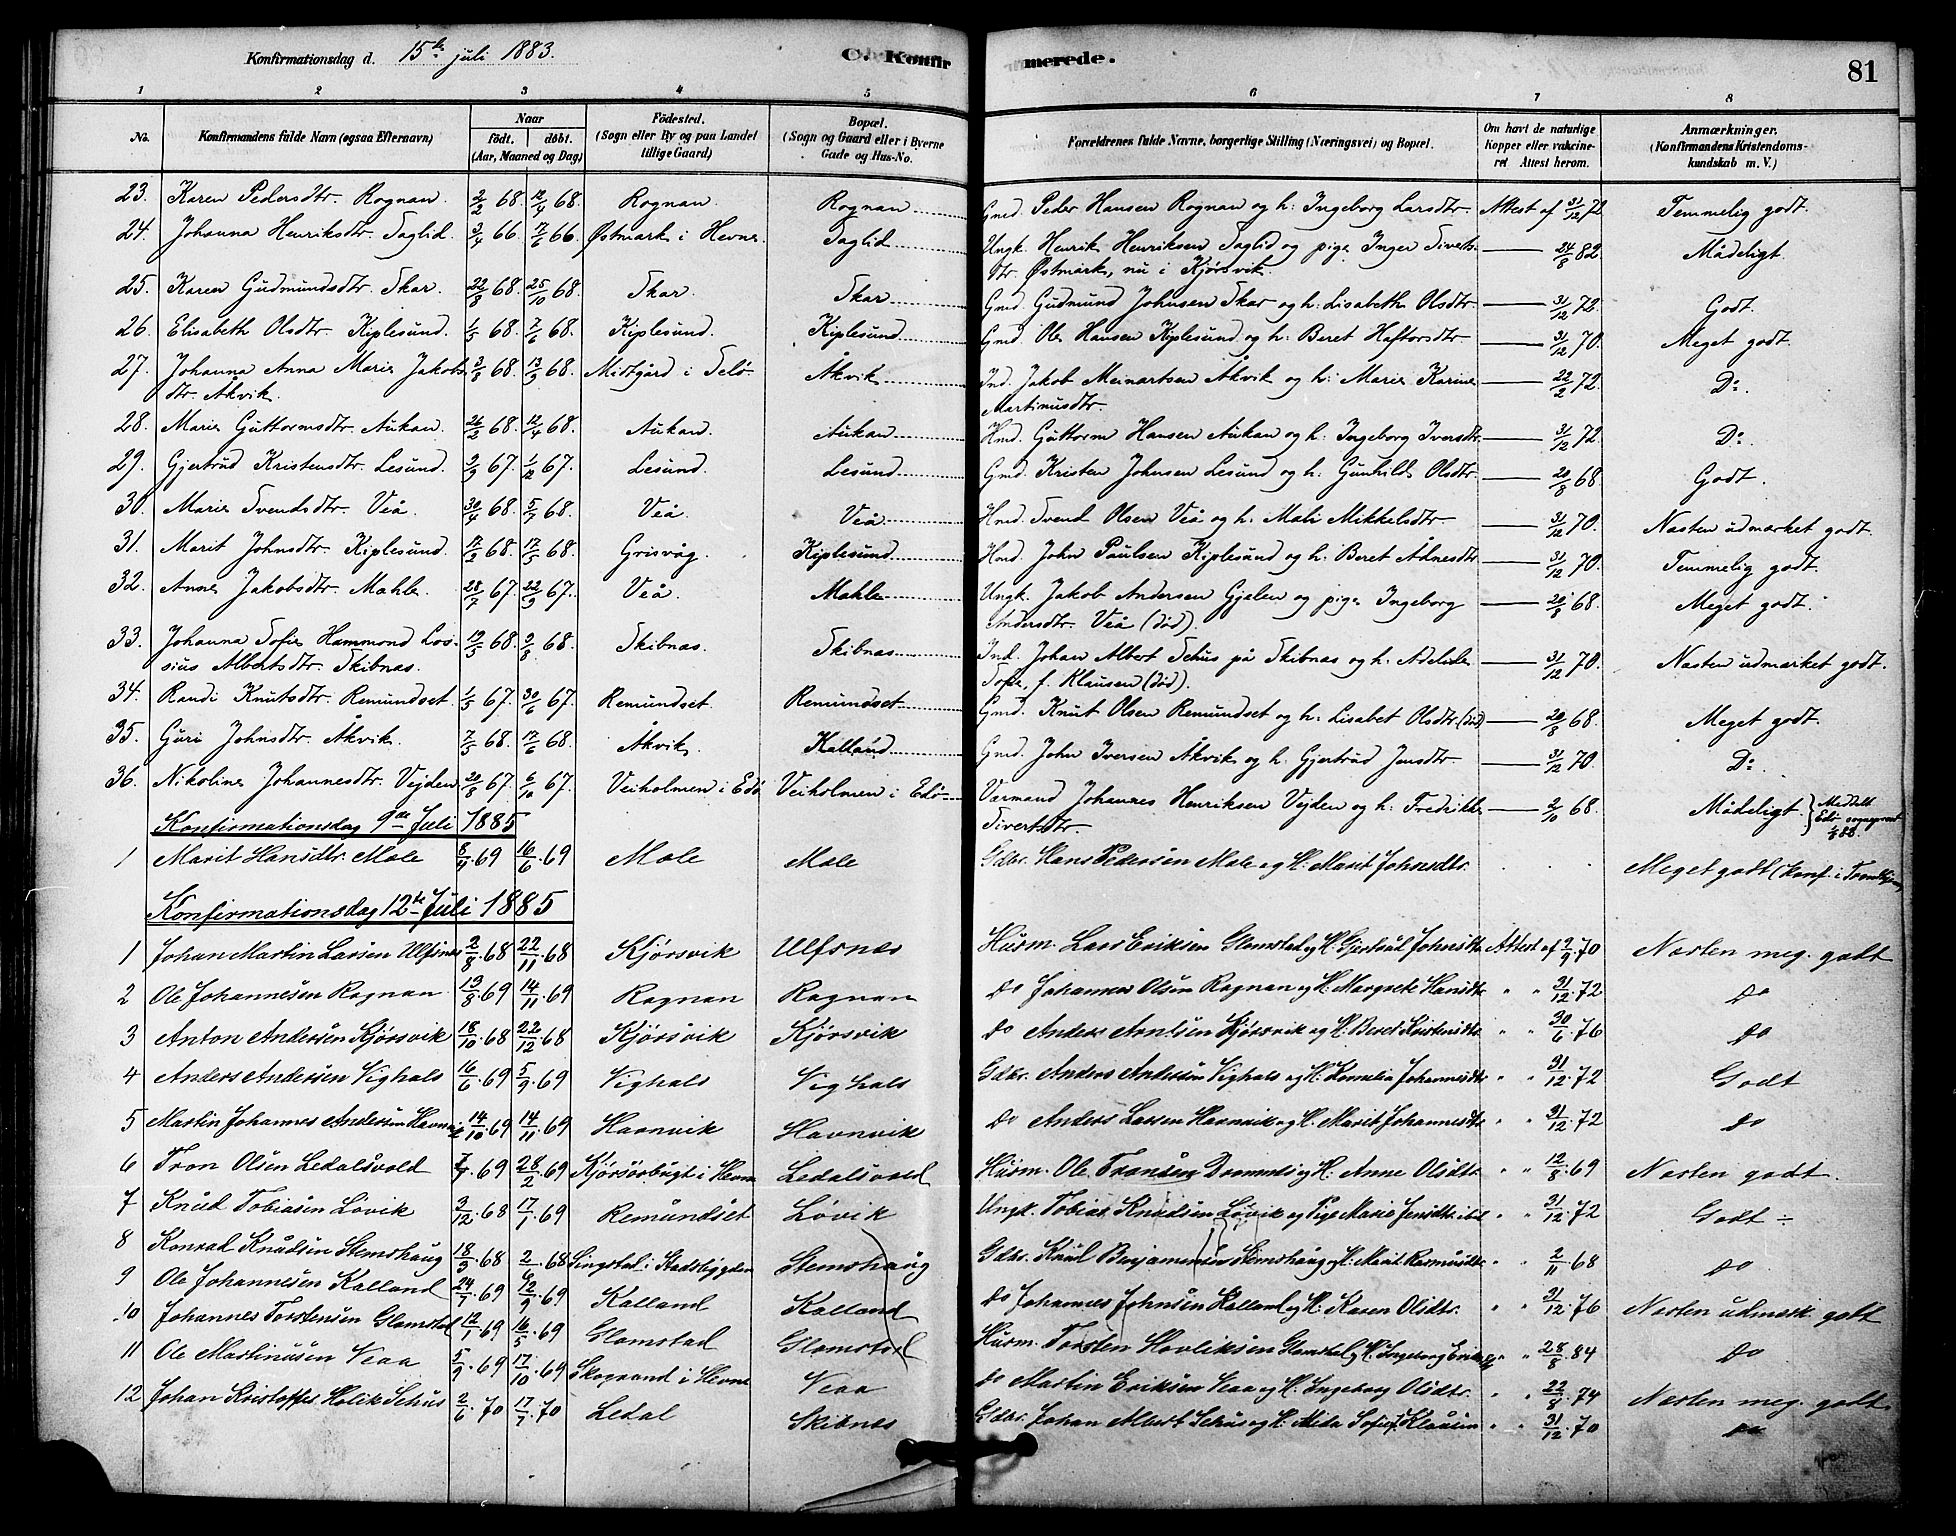 Konfirmationsdag d. 15de juli 1883. C. Konfirmerede. 81
1 2 3 4 5 6 7 8
No. Konfirmandens fulde Navn (ogsaa Efternavn) Naar födt. döbt. (Aar, Maaned og Dag) Födested. (Sogn eller By og paa Landet tillige Gaard) Bopæl. (Sogn og Gaard eller i Byerne Gade og Hus-No. Forældrenes fulde Navne, borgerlige Stilling (Næringsvei) og Bopæl. Om havt de naturlige Kopper eller vaccineret Attest herom. Anmærkninger. (Konfirmandens Kristendomskundskab m. V.)
23. Karen Pedersdtr. Rognan. 2/2 68. 12/4 68. Rognan. Rognan Gmd. Peder Hansen Rognan og h: Ingeborg Larsdtr. Attest af 31/12 72. Temmelig godt.
24. Johanna Henriksdtr. Taglid. 3/4 66. 17/6 66. Østmark i Hevne. Taglid Ungk. Henrik Henriksen Taglid og pige Inger Siverts-
dtr. Østmark, nu i Kjørsvik. 24/8 82. Mådeligt.
25. Karen Gudmundsdtr. Skar. 22/8 68. 25/10 68. Skar. Skar Gmd. Gudmund Johnsen Skar og h: Lisabeth Olsdtr. 31/12 72. Godt.
26. Elisabeth Olsdtr. Kiplesund. 1/5 68. 7/6 68. Kiplesund. Kiplesund Gmd. Ole Hansen Kiplesund og h: Beret Haftorsdtr 31/12 70. Meget godt.
27. Johanna Anna Marie Jakobs- 3/8 68. 13/9 68. Midtgård i Selö. Åkvik Ind. Jakob Meinartsen Åkvik og h: Marie Karine 22/2 72. Do.
dtr. Åkvik. Martinusdtr.
28. Marie Guttormsdtr. Aukan. 26/2 68. 12/4 68. Aukan. Aukan Hmd. Guttorm Hansen Aukan og h: Ingeborg Iversdtr 31/12 72. Do.
29. Gjertrud Kristensdtr. Lesund. 2/9 67. 1/12 67. Lesund. Lesund Gmd. Kristen Johnsen Lesund og h: Gunhild Olsdtr. 20/8 68. Godt.
30. Marie Svendsdtr. Veå. 30/4 68. 5/7 68. Veå. Veå Hmd. Svend Olsen Veå og h: Mali Mikkelsdtr. 31/12 70. Næsten udmærket godt.
31. Marit Johnsdtr. Kiplesund. 17/2 68. 17/5 68. Grisvåg. Kiplesund Hmd. John Paulsen Kiplesund og h: Beret Ådnesdtr 31/12 70. Temmelig godt.
32. Anne Jakobsdtr. Mahle. 28/7 67. 22/9 67. Veå. Mahle Ungk. Jakob Andersen Gjelen og pige Ingeborg 20/8 68. Meget godt.
Andersdtr. Veå (död).
33. Johanna Sofie Hammond Los- 19/5 68. 9/8 68. Skibnæs. Skibnæs Ind. Johan Albert Schus på Skibnæs og h: Adelide 31/12 70. Næsten udmærket godt.
sius Albertsdtr. Skibnæs. Sofie, f. Klausen (död).
34. Randi Knutsdtr. Remundset. 1/5 67. 30/6 67. Remundset. Remundset Gmd. Knut Olsen Remundset og h: Lisabet Olsdtr (död) 20/8 68. Meget godt.
35. Guri Johnsdtr. Åkvik. 7/5 68. 17/6 68. Åkvik. Kalland Gmd. John Iversen Åkvik og h: Gjertrud Jonsdtr. 31/12 70. Do.
36. Nikoline Johannesdtr. Vejden 20/8 67. 6/10 67. Veiholmen i Edö. Veiholmen i Edö Værmand Johannes Henriksen Vejden og h: Fredrikke 2/10 68. Mådeligt. Meddelt Edö
Sivertsdtr.
Konfirmationsdag 9de Juli 1885
1 Marit Hansdtr. Male 8/4 69 16/6 69 Male Male Gdbr. Hans Pedersen Male og H. Marit Johnsdtr. Meget godt (konf. i Trondhjem
Konfirmationsdag 12te Juli 1885
1 Johan Martin Larsen Ulfsnes 2/8 68 22/11 68 Kjörsvik Ulfsnes Husm. Lars Eriksen Glamstad og H. Gjertrud Johnsdtr. Attest af 2/9 70 Næsten meg. godt
2 Ole Johannesen Rognan 13/8 69 14/11 69 Rognan Rognan do Johannes Olsen Rognan og H. Margrete Hansdtr " " 31/12 72 do
3 Anton Andersen Kjörsvik 18/10 68 22/12 68 Kjörsvik Kjörsvik do Anders Arntsen Kjörsvik og H. Beret Kristensdtr " " 30/6 76 do
4 Anders Andersen Vighals 16/6 69 5/9 69 Vighals Vighals Gdbr. Anders Andersen Vighals og H. Kornelia Johannesdtr " " 31/12 72 Godt
5 Martin Johannes Andersen Havnvik 14/10 69 14/11 69 Havnvik Havnvik do Anders Larsen Havnvik og H. Marit Johannesdtr " " 31/12 72 do
6 Tron Olsen Ledalsvold 69 28/2 69 Kjörsörbugt i Hevne Ledalsvold Husm. Ole Tronsen og H. Anne Olsdtr. " " 12/8 69 Næsten godt.
7 Knud Tobiasen Lövik 3/12 68 17/1 69 Remundset Lövik Ungk. Tobias Knudsen Lövik og Pige Marie Jensdtr. ibd " " 31/12 72 Godt ÷
8 Konrad Knudsen Stemshaug 18/3 68 2/6 68 Singstad i Stadsbygden Stemshaug Gdbr. Knud Benjaminsen Stemshaug og H. Marit Rasmusdtr " " 2/11 68 do
9 Ole Johannesen Kalland 24/7 69 12/9 69 Kalland Kalland do Johannes Johnsen Kalland og H. Karen Olsdtr. " " 31/12 76 Næsten udmærk. godt
10 Johannes Torstensen Glamstad 12/1 69 16/5 69 Glamstad Glamstad Husm. Torsten Glamstad og H. Ingeborg Eriksd. " " 28/8 84 do
11 Ole Martinusen Veaa 5/9 69 17/10 69 Skogrand i Hevne Veaa do Martin Eriksen Veaa og H. Ingeborg Olsdtr. " " 22/8 74 Næsten meg. godt
12 Johan Kristoffer Holck Schus 2/6 70 17/7 70 Ledal Skibnes Gdbr. Johan Albert Schus og H. Sofie f. Klausen " " 31/12 70 do